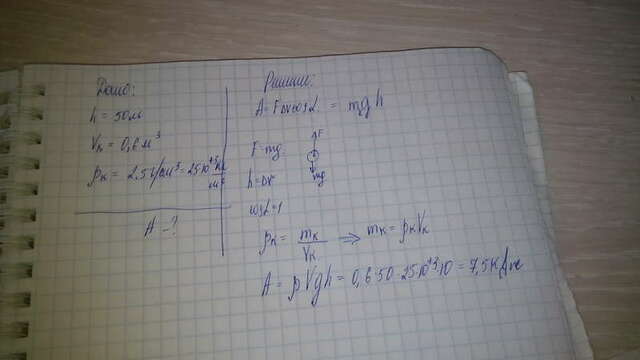 Дано:
h = 50м
Vк = 0,6 м³
ρк = 2,5 г/см³ = 2,5·10⁺³ кг/м³
A - ?
Решение:
A = F Δr cos α = mgh
F = mg
F
mg
h = Δr
cos α = 1
ρк = mк/Vк ⟹ mк = ρкVк
A = ρVgh = 0,6·50·2,5·10⁺³·10 = 7,5